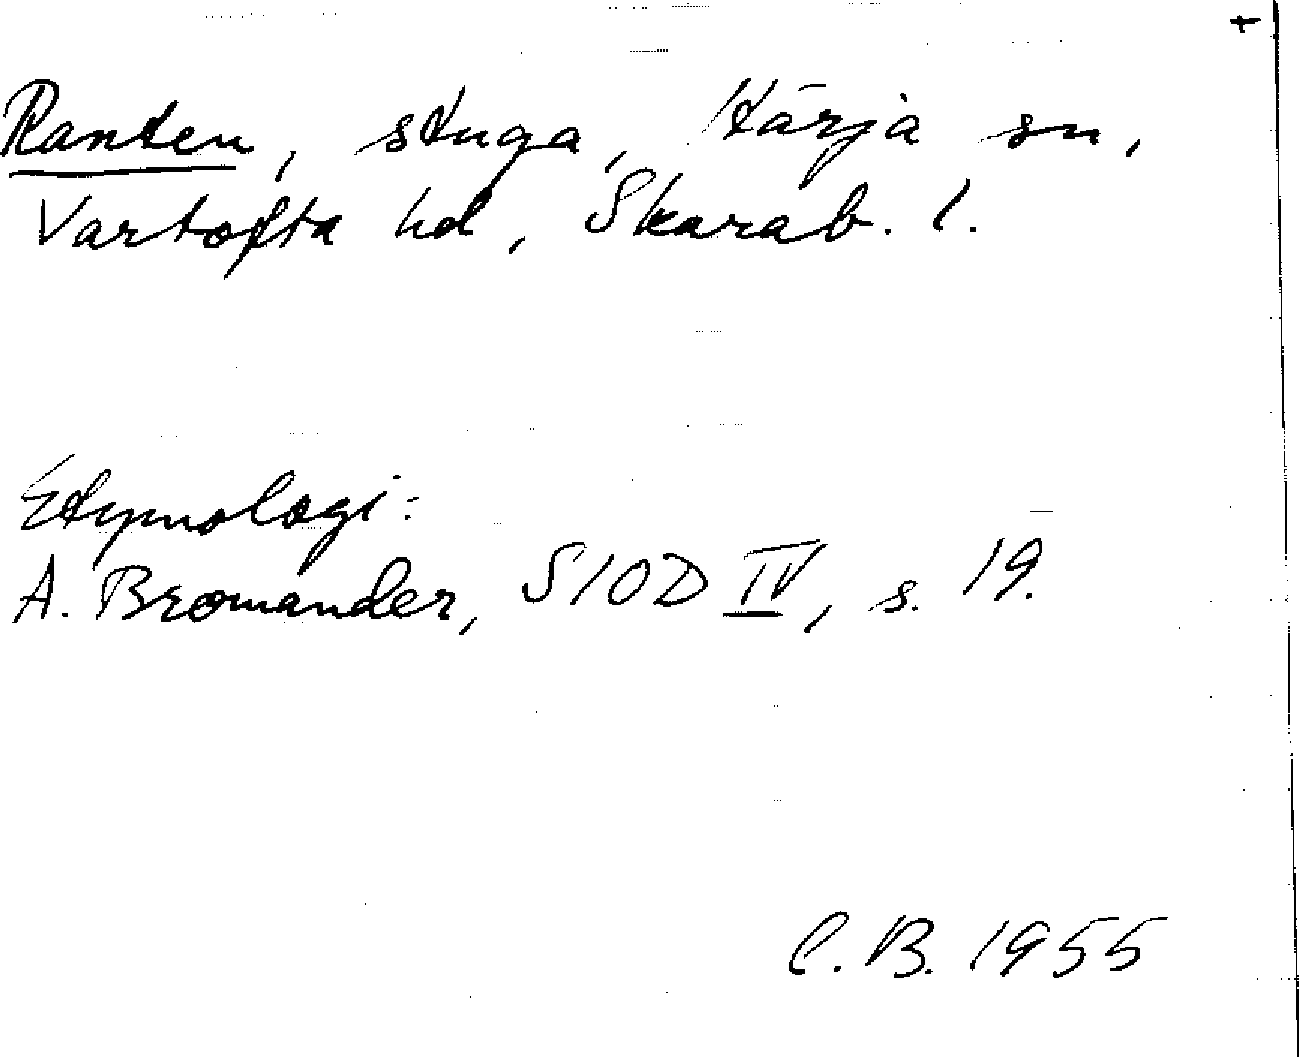 Ranten, stuga, Härja sn,
Vartofta hd, Skarab. l.
Etymologi:
A. Bromander, SIOD IV, s. 19.
C. B. 1955